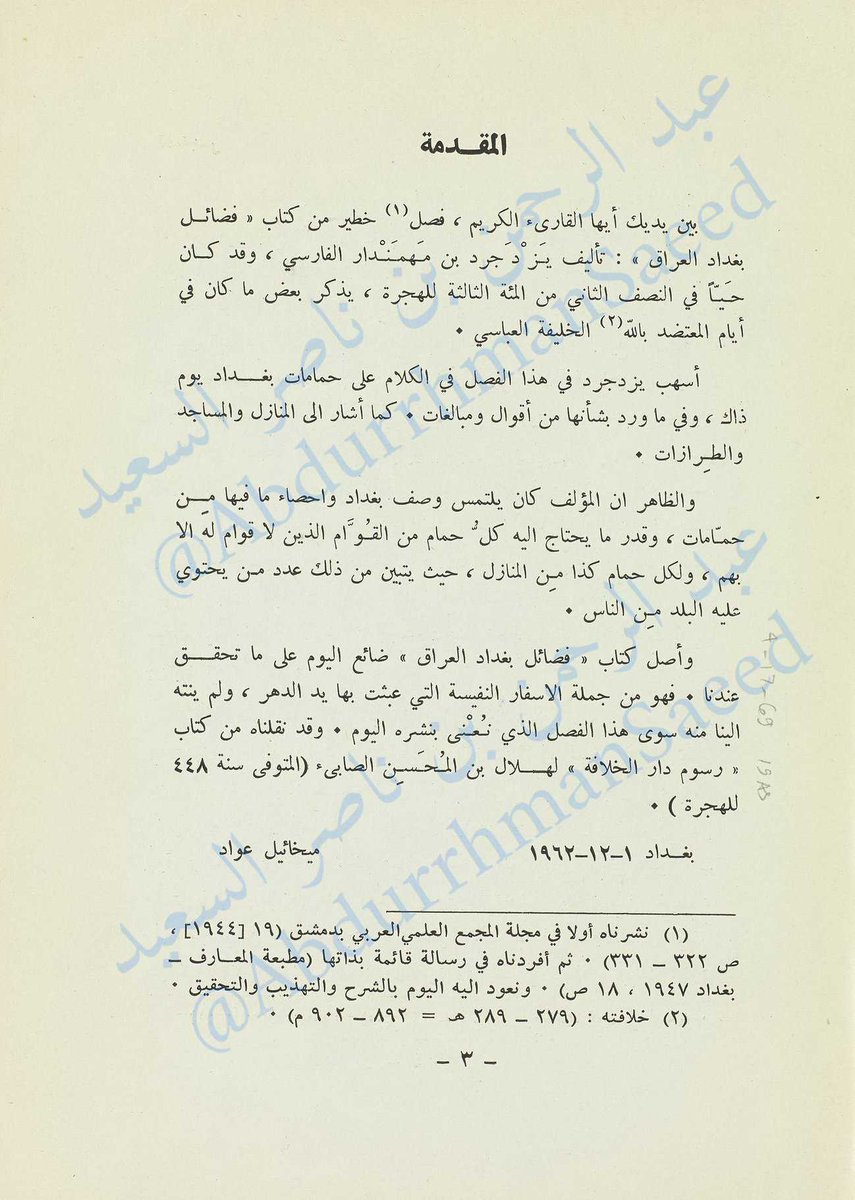 المقـدمة
بين يديك أيها القارىء الكريم ، فصل(١) خطير من كتاب « فضائـل
بغداد العراق » : تأليف يَـزْدَجرد بن مَهمَنْدار الفارسي ، وقد كـان
حَيـّاً في النصف الثاني من المئة الثالثة للهجرة ، يذكر بعض ما كان في
أيام المعتضد بالله(٢) الخليفة العباسي ٠
أسهب يزدجرد في هذا الفصل في الكلام على حمامات بغـداد يوم
ذاك ، وفي ما ورد بشأنها من أقوال ومبالغات ٠ كما أشار الى المنازل والمساجد
والطِرازات ٠
والظاهر ان المؤلف كان يلتمس وصف بغداد واحصاء ما فيها مِـن
حمـّامات ، وقدر ما يحتاج اليه كلُّ حمام من القُوَّام الذين لا قوام له الا
بهم ، ولكل حمام كذا مِـن المنازل ، حيث يتبين من ذلك عدد مـن يحتوي
عليه البلد مِـن الناس ٠
وأصل كتاب « فضائل بغداد العراق » ضائع اليوم على ما تحقـق
عندنا ٠ فهو من جملة الاسفار النفيسة التي عبثت بها يد الدهر ، ولم ينته
الينا منه سوى هذا الفصل الذي نُعْنى بنشره اليوم ٠ وقد نقلناه من كتاب
« رسوم دار الخلافة » لهـلال بن المُحَسِـن الصابىء (المتوفى سنة ٤٤٨
للهجرة ) ٠
بغـداد ١-١٢-١٩٦٢ ميخائيل عواد
(١) نشرناه أولا في مجلة المجمع العلمي العربي بدمشق (١٩ [١٩٤٤] ،
ص ٣٢٢ – ٣٣١) ٠ ثم أفردناه في رسالة قائمة بذاتها (مطبعة المعـارف –
بغداد ١٩٤٧ ، ١٨ ص) ٠ ونعود اليه اليوم بالشرح والتهذيب والتحقيق ٠
(٢) خلافته : (٢٧٩ – ٢٨٩ هـ = ٨٩٢ – ٩٠٢ م) ٠
- ٣ -
عبد الرحمن بن ناصر السعيد
@AbdurrhmanSaeed
عبد الرحمن بن ناصر السعيد
@AbdurrhmanSaeed